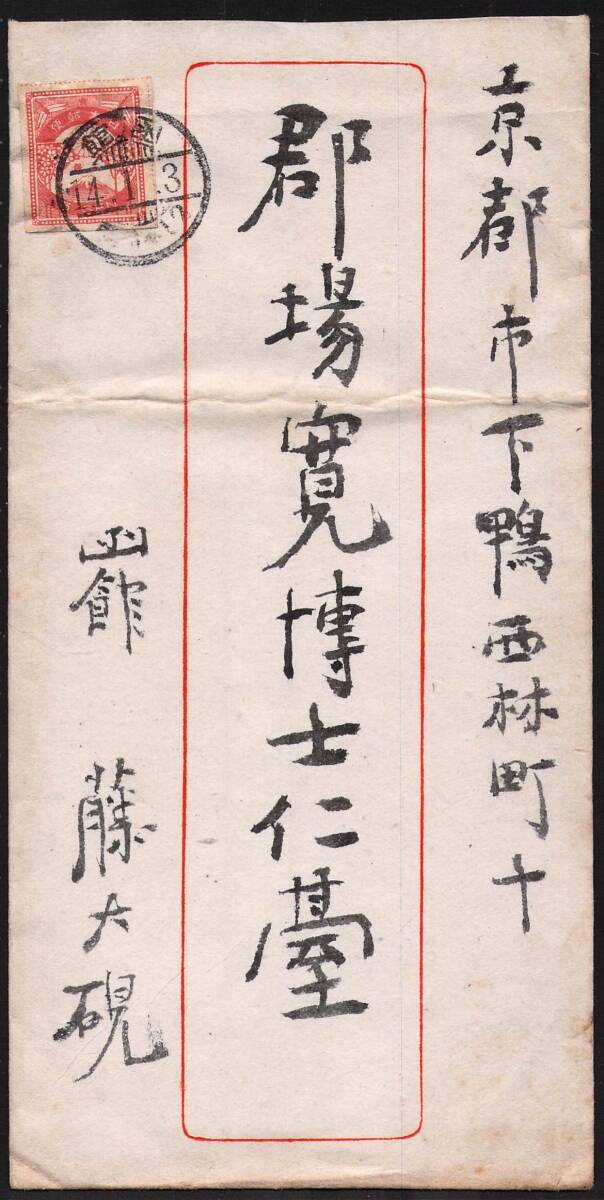 京都市下鴨西林町十
郡場寛博士仁臺
函館 藤大硯
14.1.3